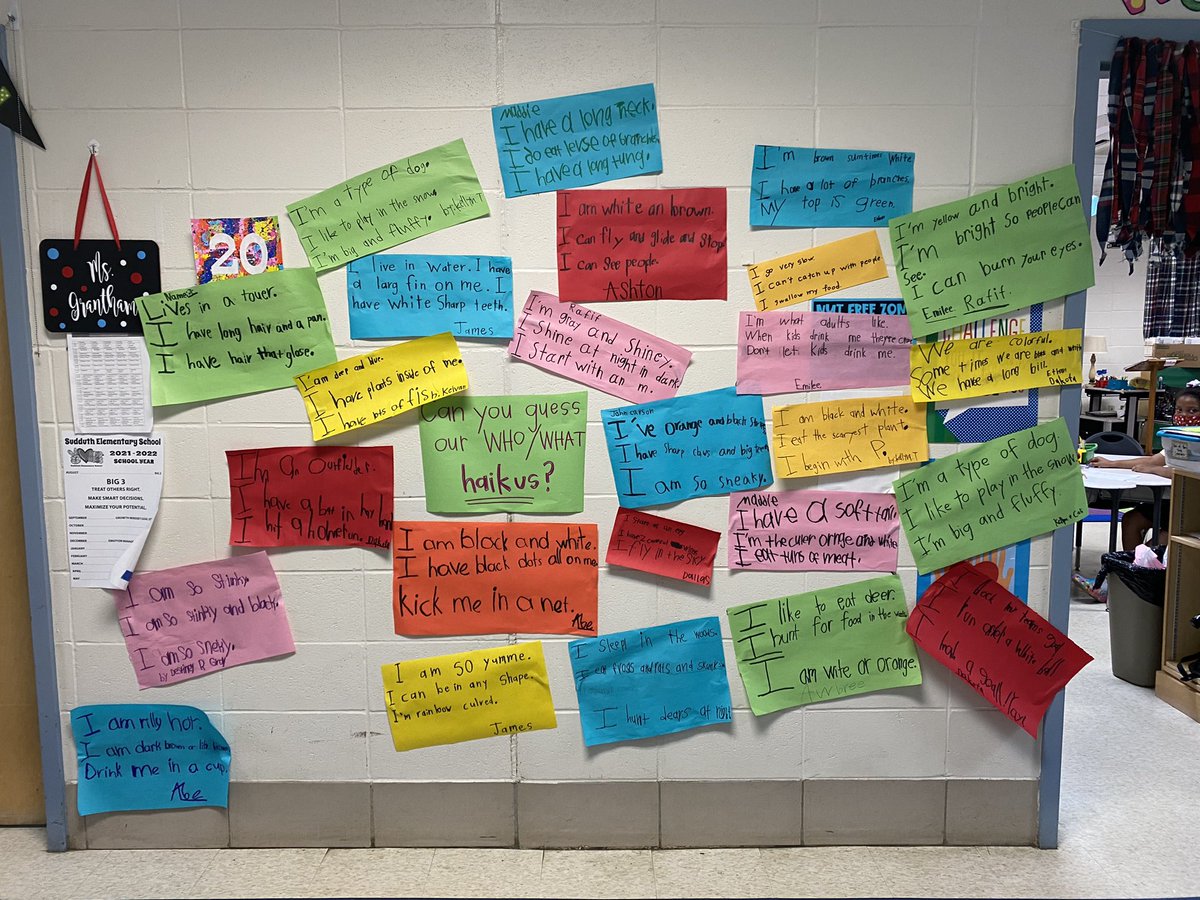 Ms.
Grantham
20
Sudduth Elementary School
2021-2022
SCHOOL YEAR
BIG 3
TREAT OTHERS RIGHT.
MAKE SMART DECISIONS.
MAXIMIZE YOUR POTENTIAL.
SEPTEMBER
OCTOBER
NOVEMBER
DECEMBER
JANUARY
FEBRUARY
MARCH
APRIL
MAY
Maddie
I have a long neck.
I do eat
I have a long tung.
I'm a type of dog.
I like to play in the snow.
I'm big and fluffy.
I'm brown
white
I have a lot of branches.
My top is green.
I am white an brown.
I can fly and glide and stop.
I can see people.
Ashton
I'm yellow and bright.
I'm bright so people can
see.
I can burn your eyes.
Emilee Rafif.
I go very slow
I can't catch up with people
I swallow my food
I live in water. I have
a larg fin on me. I
have white sharp teeth.
James
Lives in a tower.
I have long hair and a pan.
I have hair that glose.
Rafif
I'm gray and shiney.
I shine at night in dark.
I start with an m.
FREE ZONE
CHALLENGE
I'm what adults like.
When kids drink me they're
Don't let kids drink me.
Emilee
We are colorful.
Some times We are
We have a long bill.
Ethan
Dakota
I am deep and blue.
I have plants inside of me.
I have lots of fish. Kelvon
Can you guess
our WHO/WHAT
haikus?
John carson
I've orange and black
I have sharp claws and big teeth
I am so sneaky.
I am black and white.
I eat the scaryest plant.
I begin with P.
I'm a type of dog.
I like to play in the snow.
I'm big and fluffy.
I'm an outfilder.
I have a bat in my hand
I hit a
I am black and white.
I have black dots all on me.
Kick me in a net.
Abe
I fly in the sky
Dallas
Maddie
I have a soft
I'm the culer orange and white
I eat tuns of meat.
I am so stinky.
I am so stinky and black.
I am so sneky.
I am so yumme.
I can be in any shape.
I'm rainbow culred.
James
I sleep in the woods.
I eat frogs and rats and
I hunt dears at night
I like to eat deer.
I hunt for food in the
I am wite or orange.
a white ball
I am rilly hot.
I am dark brown or
Drink me in a cup.
Abe